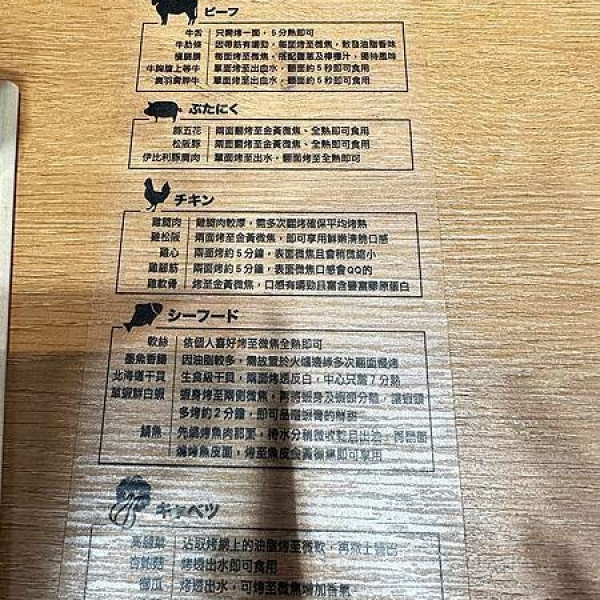 ビーフ
牛舌 只需烤一面，5分熟即可
牛肋條 因帶筋有嚼勁，每面烤至微焦，散發油脂香味
橫膈膜 每面烤至微焦，搭配鹽蔥及檸檬汁，獨特風味
牛胸腹上等牛 單面烤至出血水，翻面約5秒即可食用
奧羽肩胛牛 單面烤至出血水，翻面約5秒即可食用
ぶたにく
豚五花 兩面翻烤至金黃微焦、全熟即可食用
松阪豚 兩面翻烤至金黃微焦、全熟即可食用
伊比利豚肩肉 單面烤至出水，翻面烤至全熟即可
チキン
雞腿肉 雞腿肉較厚，需多次翻烤確保平均烤熟
雞松阪 兩面烤至金黃微焦，即可享用鮮嫩清脆口感
雞心 兩面烤約5分鐘，表面微焦且會稍微縮小
雞腳筋 兩面烤約5分鐘，表面微焦口感會QQ的
雞軟骨 烤至金黃微焦，口感有嚼勁且富含豐富膠原蛋白
シーフード
軟絲 依個人喜好烤至微焦全熟即可
墨魚香腸 因油脂較多，需放置於火爐邊緣多次翻面慢烤
北海道干貝 生食級干貝，兩面烤透反白，中心只需7分熟
草蝦鮮白蝦 蝦身烤至兩側微焦，再將蝦身及蝦頭分離，讓蝦頭
多烤約2分鐘，即可品嚐蝦膏的鮮甜
鯖魚 先燒烤魚肉那面，待水分稍微收乾且出油，再翻面
燒烤魚皮面，烤至魚皮金黃微焦即可享用
キャベツ
高麗菜 沾取烤網上的油脂烤至微軟，再撒上
杏鮑菇 烤透出水即可食用
櫛瓜 烤透出水，可烤至微焦增加香氣